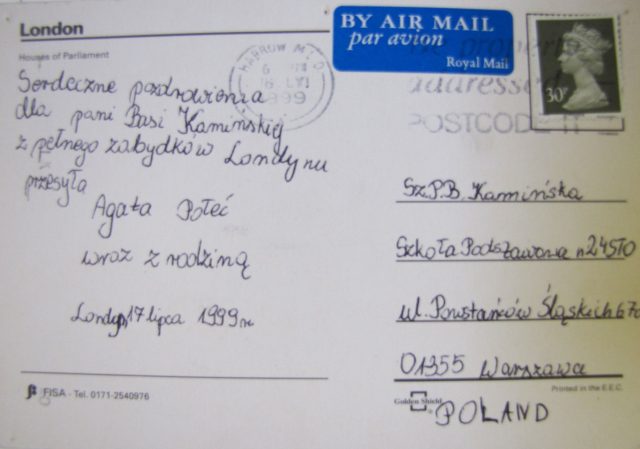 London
Houses of Parliament
BY AIR MAIL
par avion
Royal Mail
30P
HARROW M
1999
addressed
POSTCODE IT
Serdeczne pozdrowienia
dla pani Basi Kamińskiej
z pełnego zabydków Londynu
przesyła
Agata Połeć
wraz z rodziną
Londyn, 17 lipca 1999r.
Sz.P.B. Kamińska
Szkoła Podstawowa n
ul. Powstańców Śląskich 67a
01355 Warszawa
POLAND
FISA - Tel. 0171-2540976
Printed in the E.E.C.
Golden Shield